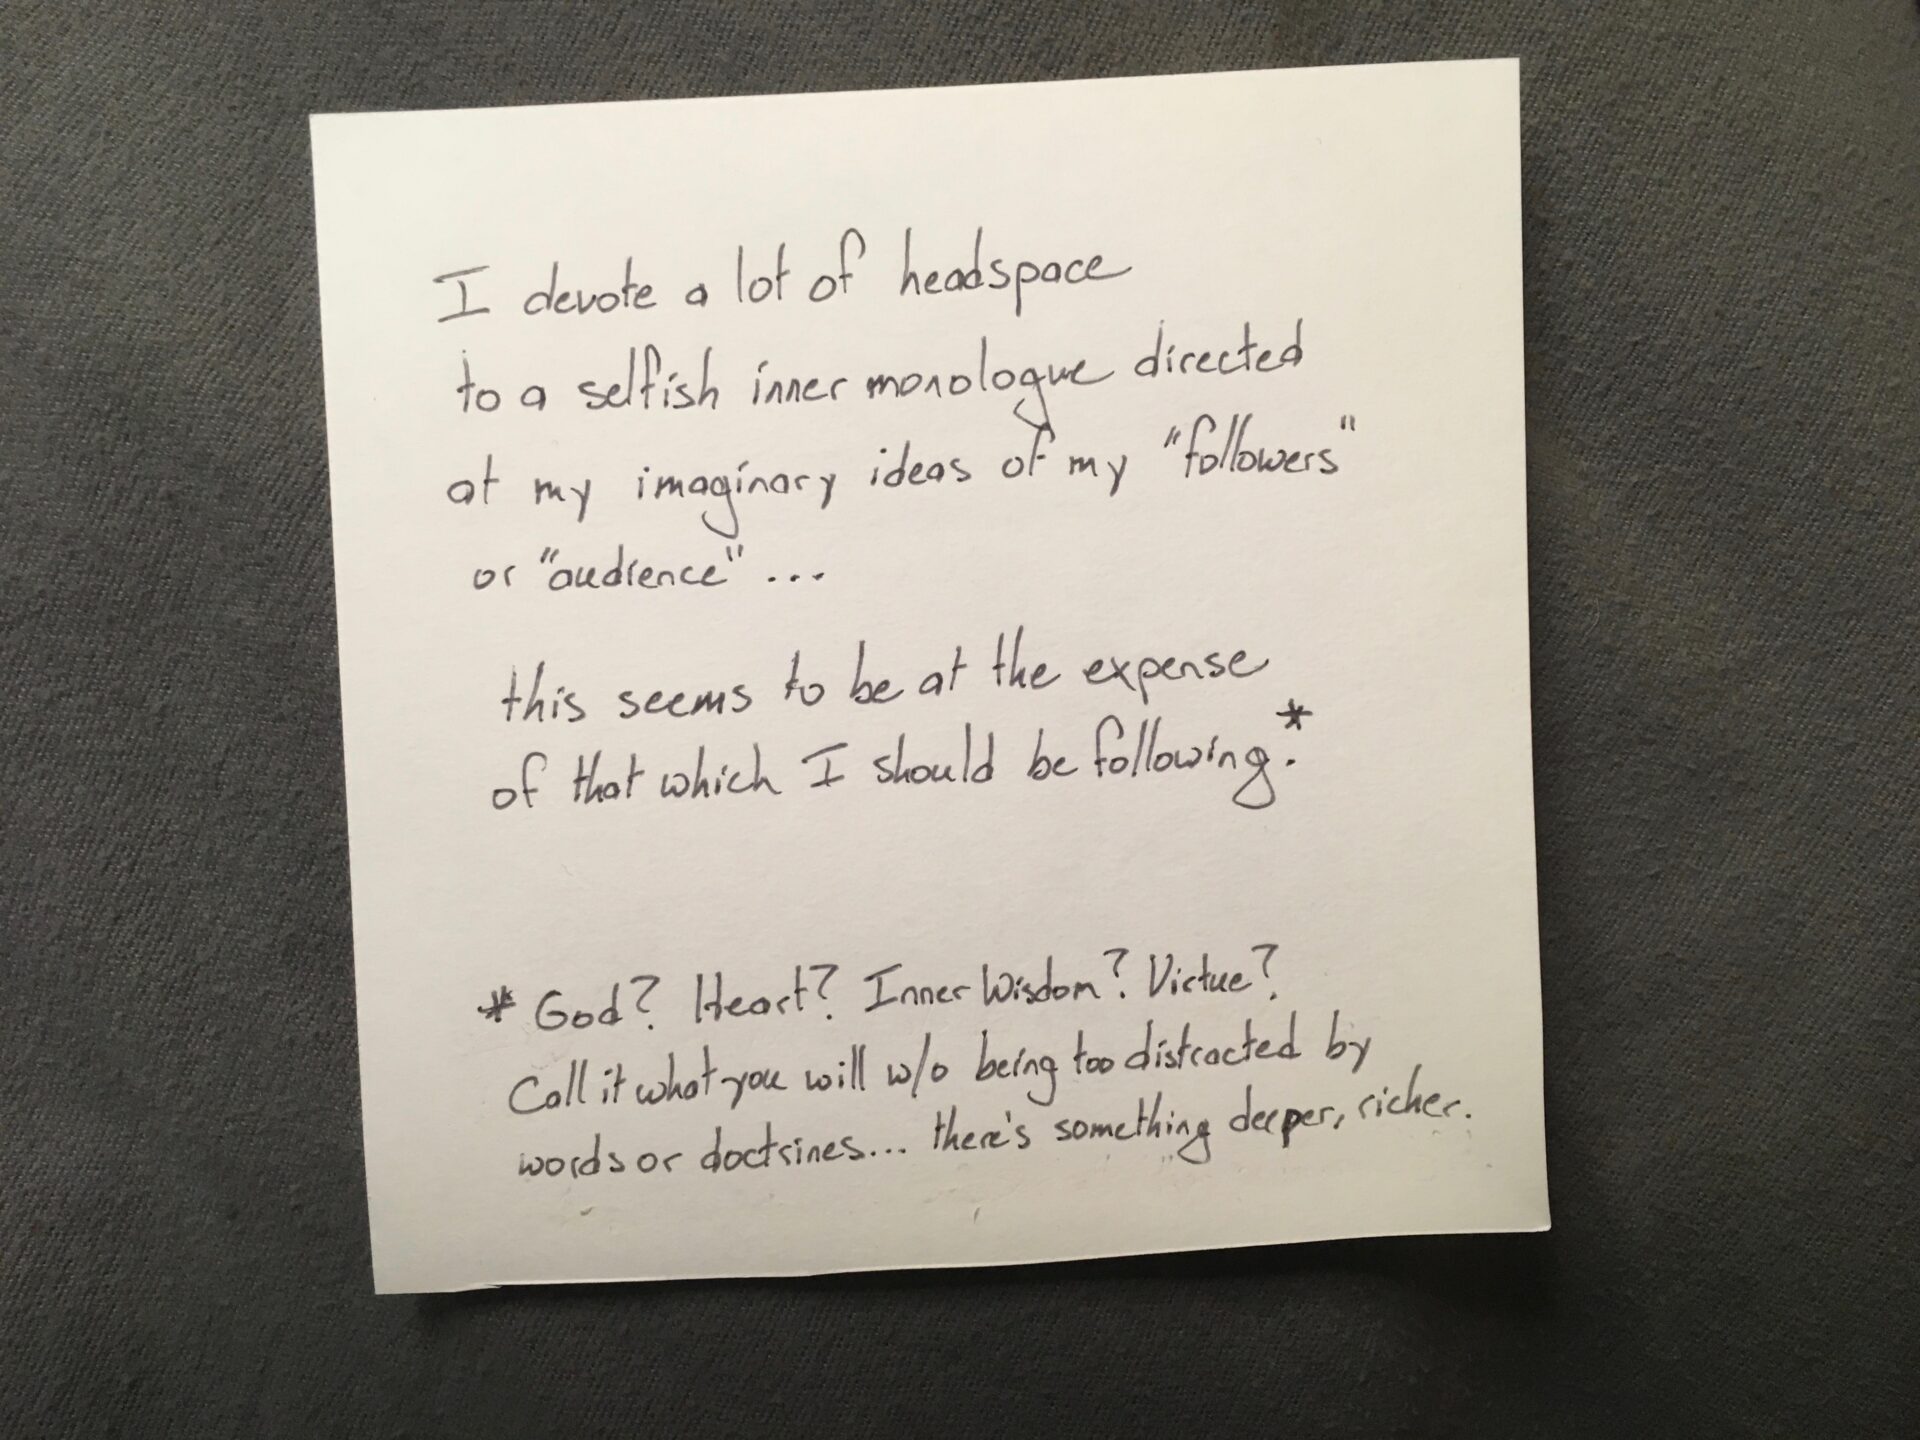 I devote a lot of headspace
to a selfish inner monologue directed
at my imaginary ideas of my "followers"
or "audience" ...
this seems to be at the expense
of that which I should be following.*
* God? Heart? Inner Wisdom? Virtue?
Call it what you will w/o being too distracted by
words or doctrines... there's something deeper, richer.